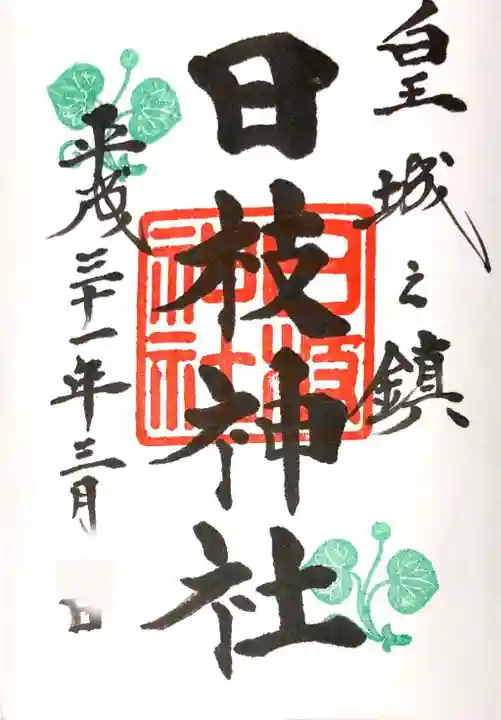 皇城之鎮
日枝神社
日枝
神社
平成三十一年三月 日